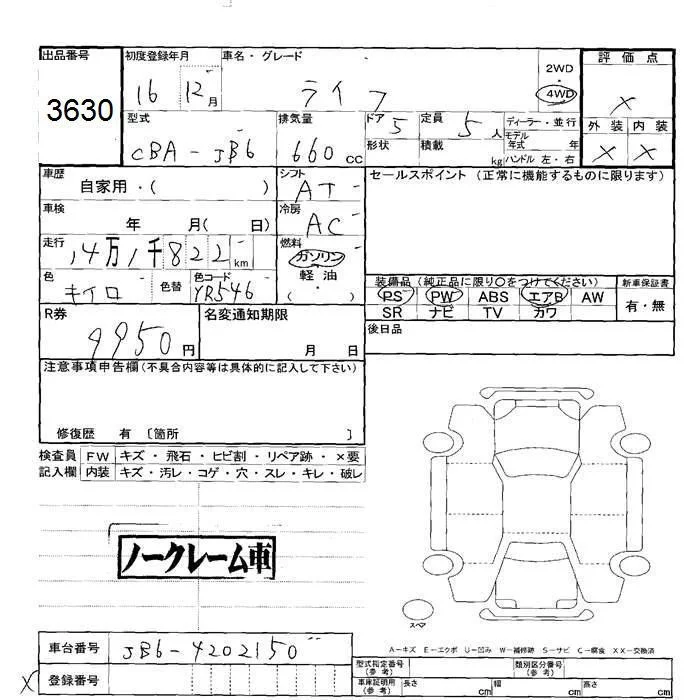 出品番号
3630
初度登録年月
16 12月
車名・グレード
ライフ
2WD
・
4WD
評価点
×
外装 内装
× ×
型式
CBA-JB6
排気量
660cc
ドア
5
形状
定員
5人
積載
kg
ディーラー・並行
モデル
年式 年
ハンドル 左・右
車歴
自家用・( )
シフト
AT
セールスポイント(正常に機能するものに限ります)
車検
年 月( 日)
冷房
AC
走行
14万1千822km
燃料
ガソリン
軽油
( ・ )
色
キイロ
色替
色コード
YR546
装備品(純正品に限り○をつけてください)
PS PW ABS エアB AW
SR ナビ TV カワ
新車保証書
有・無
R券
9950円
名変通知期限
月 日
後日品
注意事項申告欄(不具合内容等は具体的に記入して下さい)
修復歴 有 〔箇所 〕
検査員 FW キズ・飛石・ヒビ割・リペア跡・×要
記入欄 内装 キズ・汚レ・コゲ・穴・スレ・キレ・破レ
ノークレーム車
スペア
A-キズ E-エクボ U-凹み W-補修跡 S-サビ C-腐食 XX-交換済
車台番号
JB6-4202150
× 登録番号
型式指定番号
(参考)
類別区分番号
(参考)
車庫証明用
(参考)
長さ cm 幅 cm 高さ cm